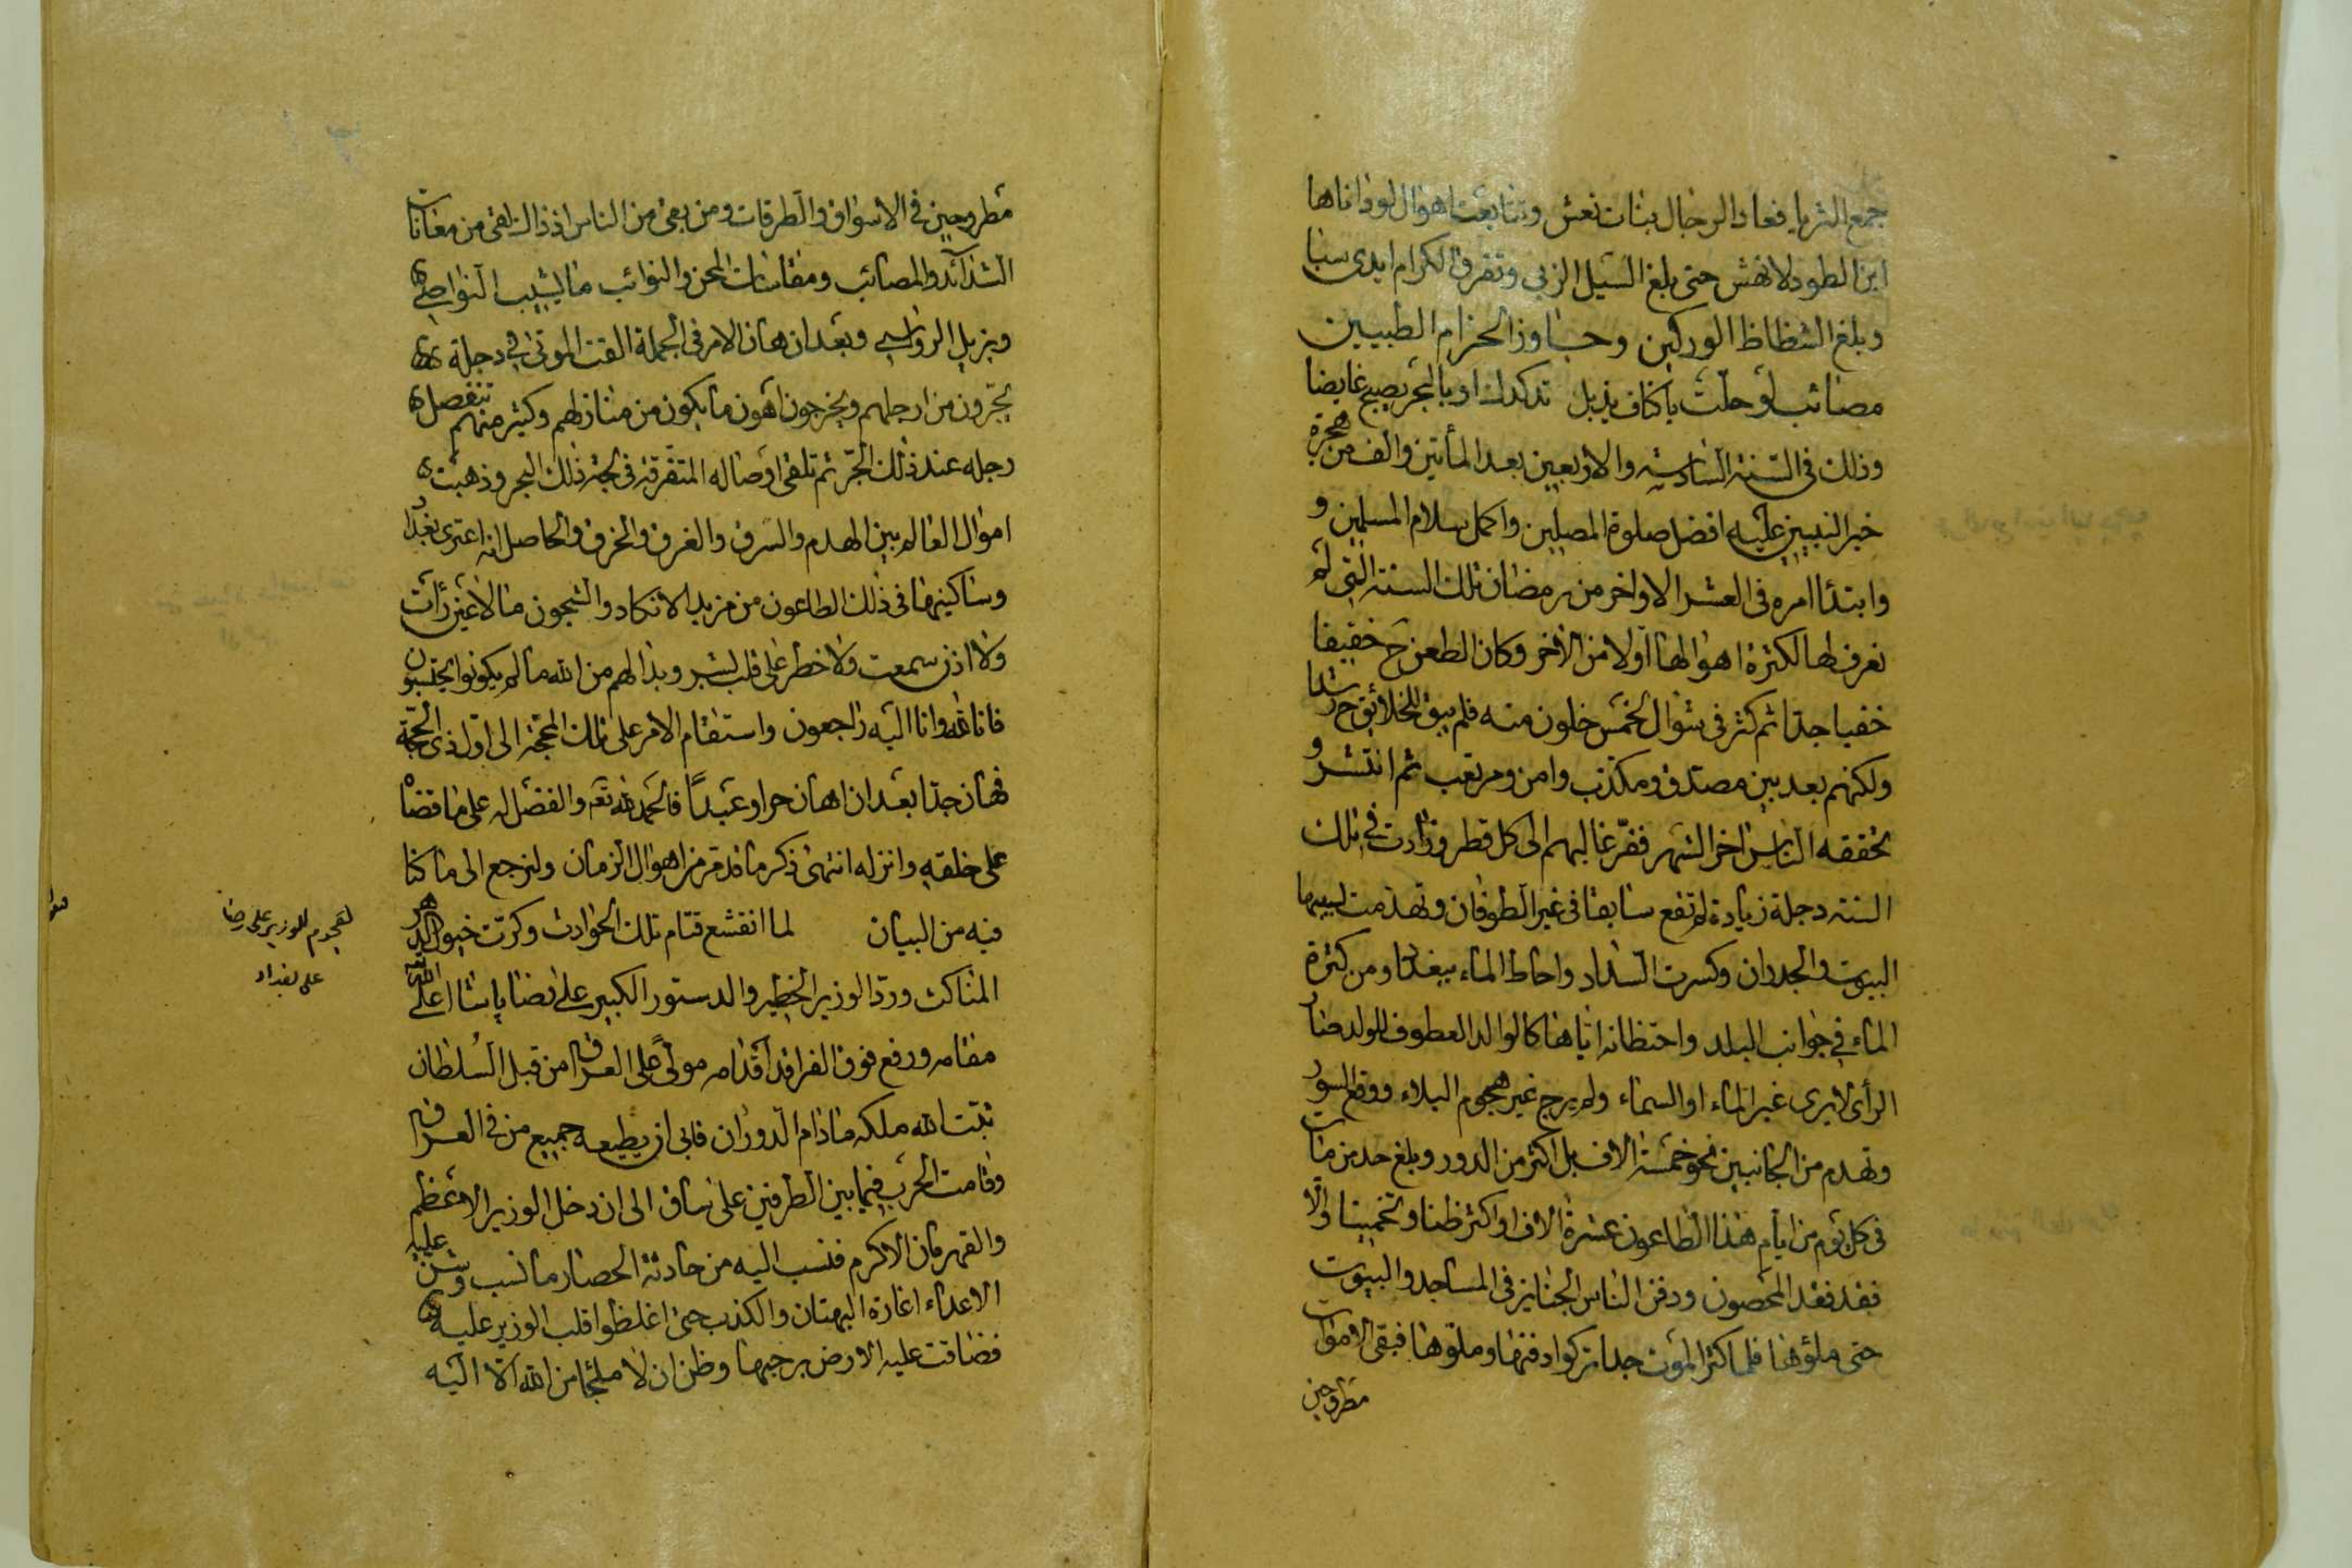 جمع الثريا فعاد الرجال بنات نعش وتتابعت اهوال لو اتاها
ابن الطود لانهش حتى بلغ السيل الزبى وتفرق الكرام ايدى سبا
وبلغ الشظاظ الوركين وجاوز الحزام الطبيين
مصائب لو حلت باكناف يذبل تدكدك او بالبحر يصبح غايضا
وذلك فى السنة السادسة والاربعين بعد المأتين والف من هجرة
خير النبيين عليه افضل صلوة المصلين واكمل سلام المسلمين و
وابتدأ امره فى العشر الاواخر من رمضان تلك السنة التى لم
نعرف لها لكثرة اهوالها اولا من الاخر وكان الطعن ح خفيفا
خفيا جدا ثم كثر فى شوال لخمس خلون منه فلم يبق للخلائق ح رشدا
ولكنهم بعد بين مصدق ومكذب وامن ومرتقب ثم انتشر و
تحققه الناس اخر الشهر ففر غالبهم الى كل قطر وزادت فى تلك
السنة دجلة زيادة لم تقع سابقا فى غير الطوفان وتهدمت بسببها
البيوت والجدران وكسرت السداد واحاط الماء ببغداد ومن كثرة
الماء فى جوانب البلد واحتظانه اياها كالوالد العطوف للولد صار
الرأى لا يرى غير الماء او السماء ولم يرج غير هجوم البلاء ووقع السور
وتهدم من الجانبين نحو خمسة الاف بل اكثر من الدور وبلغ حد من مات
فى كل يوم من ايام هذا الطاعون عشرة الاف او اكثر ظنا وتخمينا والا
فقد فقد المحصون ودفن الناس الجنايز فى المساجد والبيوت
حتى ملؤها فلما كثر الموت جدا تركوا دفنها وملوها فبقى الاموات
مطروحين
مطروحين فى الاسواق والطرقات ومن بقى من الناس اذ ذاك لقى من معانات
الشدائد والمصائب ومقاسات المحن والنوائب ما يشيب النواصى
ويزيل الرواسى وبعد ان هان الامر فى الجملة القت الموتى فى دجلة
تجرون من ارجلهم ويخرجون اهون ما يكون من منازلهم وكثير منهم تنفصل
رجله عند ذلك الجر ثم تلقى اوصاله المتفرقة فى لجة ذلك البحر وذهبت
اموال العالم بين الهدم والسرق والغرق والخرق والحاصل انه اعترى بغداد
وساكينها فى ذلك الطاعون من مزيد الانكاد والشجون ما لا عين رأت
ولا اذن سمعت ولا خطر على قلب بشر وبدا لهم من الله ما لم يكونوا يحتسبون
فانا لله وانا اليه راجعون واستقام الامر على تلك المحجة الى اول ذى الحجة
فهان جدا بعد ان اهان حرا وعبدا فالحمد لله تعه والفضل له على ما قضاه
على خلقه وانزله انتهى ذكر ما قد مر من اهوال الزمان ولنرجع الى ما كنا
فيه من البيان لما انقشع قتام تلك الحوادث وكرت خيول الدهر
المناكث ورد الوزير الخطير والدستور الكبير على رضا پاشا اعلى الله
مقامه ورفع فوق الفراقد اقدامه مولى على العراق من قبل السلطان
ثبت الله ملكه ما دام الدوران فابى ان يطيعه جميع من فى العراق
وقامت الحرب فيما بين الطرفين على ساق الى ان دخل الوزير الاعظم
والقهرمان الاكرم فنسب اليه من حادثة الحصار ما نسب وشن عليه
الاعداء اغارة البهتان والكذب حتى اغلظوا قلب الوزير عليه
فضاقت عليه الارض برحبها وظن ان لا ملجأ من الله الا اليه
للوزير على رضا
على بغداد